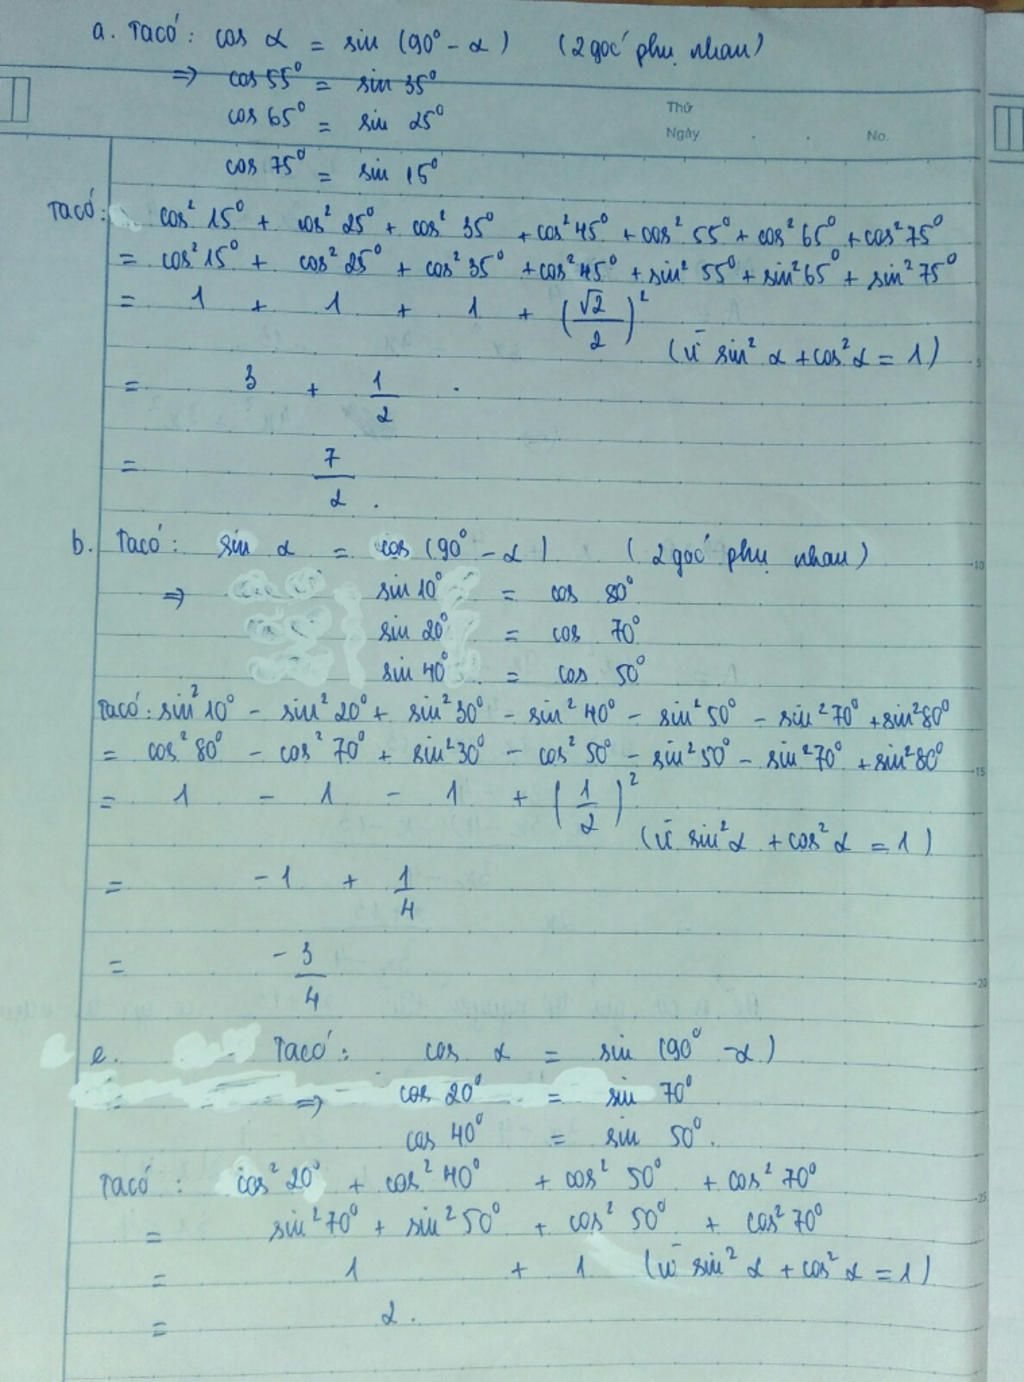 a. Ta có: cos α = sin (90° - α) (2 góc phụ nhau)
⇒ cos 55° = sin 35°
cos 65° = sin 25°
Thứ
Ngày . . No.
cos 75° = sin 15°
Ta có: cos² 15° + cos² 25° + cos² 35° + cos² 45° + cos² 55° + cos² 65° + cos² 75°
= cos² 15° + cos² 25° + cos² 35° + cos² 45° + sin² 55° + sin² 65° + sin² 75°
= 1 + 1 + 1 + (√2/2)²
(vì sin² α + cos² α = 1)
= 3 + 1/2 .
= 7/2 .
b. Ta có: sin α = cos (90° - α) (2 góc phụ nhau)
⇒ sin 10° = cos 80°
sin 20° = cos 70°
sin 40° = cos 50°
Ta có: sin² 10° - sin² 20° + sin² 30° - sin² 40° - sin² 50° - sin² 70° + sin² 80°
= cos² 80° - cos² 70° + sin² 30° - cos² 50° - sin² 50° - sin² 70° + sin² 80°
= 1 - 1 - 1 + (1/2)²
(vì sin² α + cos² α = 1)
= -1 + 1/4
= -3/4
c. Ta có: cos α = sin (90° - α)
⇒ cos 20° = sin 70°
cos 40° = sin 50°.
Ta có: cos² 20° + cos² 40° + cos² 50° + cos² 70°
= sin² 70° + sin² 50° + cos² 50° + cos² 70°
= 1 + 1 (vì sin² α + cos² α = 1)
= 2.